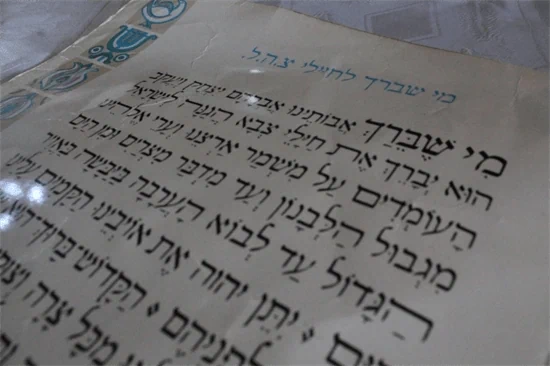 מי שברך לחיילי צ.ה.ל.
מִי שֶׁבֵּרַךְ אֲבוֹתֵינוּ אַבְרָהָם יִצְחָק וְיַעֲקֹב
הוּא יְבָרֵךְ אֶת חַיָּלֵי צְבָא הֲגַנָּה לְיִשְׂרָאֵל
הָעוֹמְדִים עַל מִשְׁמַר אַרְצֵנוּ וְעָרֵי אֱלֹהֵינוּ
מִגְּבוּל הַלְּבָנוֹן וְעַד מִדְבַּר מִצְרַיִם וּמִן הַיָּם
הַגָּדוֹל עַד לְבוֹא הָעֲרָבָה בַּיַּבָּשָׁה בָּאֲוִיר
יִתֵּן יהוה אֶת אוֹיְבֵינוּ הַקָּמִים עָלֵינוּ
לִפְנֵיהֶם • הַקָּדוֹשׁ בָּרוּךְ הוּא
מִכָּל צָרָה